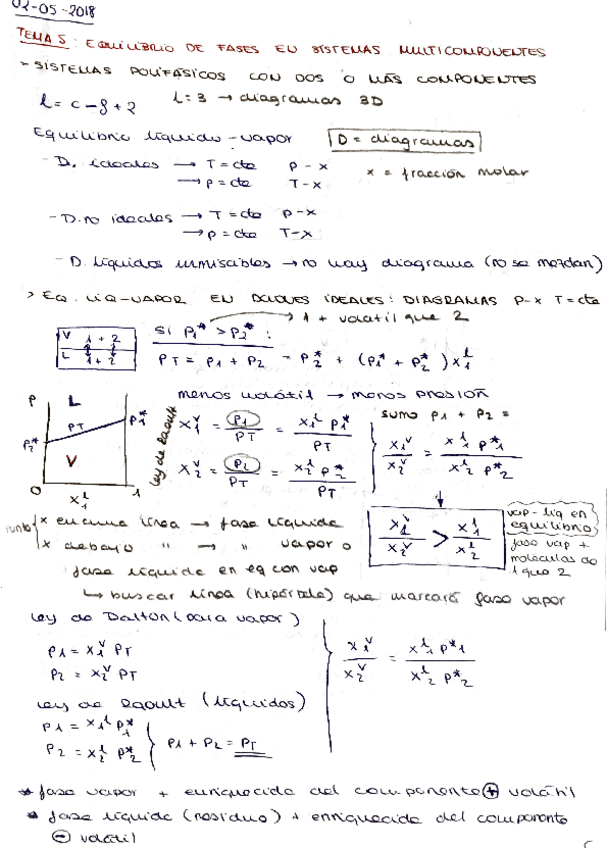 02-05-2018
TEMA 5: EQUILIBRIO DE FASES EN SISTEMAS MULTICOMPONENTES
- SISTEMAS POLIFÁSICOS CON DOS O MÁS COMPONENTES
l = c - f + 2   l = 3 → diagramas 3D
Equilibrio líquido-vapor   D = diagramas
- D. ideales → T = cte   p - x   x = fracción molar
→ p = cte   T - x
- D. no ideales → T = cte   p - x
→ p = cte   T - x
- D. líquidos inmiscibles → no hay diagrama (no se mezclan)
> EQ. LIQ-VAPOR EN IDEALES: DIAGRAMAS P-x T = cte
V 1 + 2
L 1 + 2
SI P1* > P2* :   → 1 + volátil que 2
PT = P1 + P2 = P2* + (P1* + P2*) x1^l
menos volátil → menos presión
P   L   PT   P1*   P2*   V   0   x1^l   1
Ley de Raoult
x1^v = P1/PT = x1^l P1*/PT
x2^v = P2/PT = x2^l P2*/PT
sumo P1 + P2 =
x1^v/x2^v = x1^l P*1/x2^l P*2
x1^v/x2^v > x1^l/x2^l
vap-liq en equilibrio
fase vap +
moléculas de
1 que 2
punto
x encima línea → fase líquida
x debajo " → " vapor o
fase líquida en eq con vap
↳ buscar línea (hipérbola) que marcará fase vapor
Ley de Dalton (para vapor)
P1 = x1^v PT
P2 = x2^v PT
x1^v/x2^v = x1^l P*1/x2^l P*2
Ley de Raoult (líquidos)
P1 = x1^l P1*
P2 = x2^l P2*
P1 + P2 = PT
* fase vapor + enriquecida del componente ⊕ volátil
* fase líquida (residuo) + enriquecida del componente
⊖ volátil